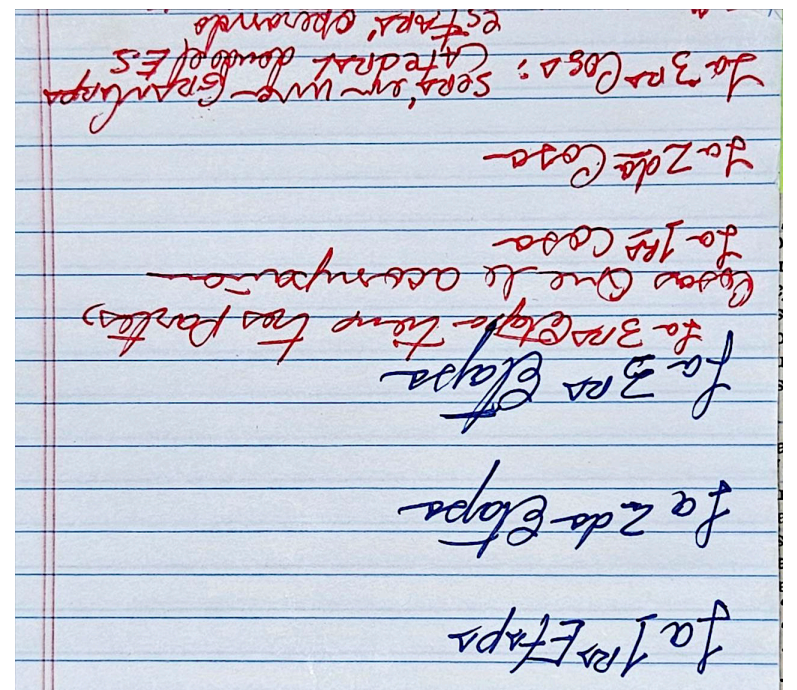 La 1ra Etapa
La 2da Etapa
La 3ra Etapa
La 3ra Etapa tiene tres partes,
Cosas que le acompañan
La 1ra Cosa
La 2da Cosa
La 3ra Cosa: será en una GRAN Carpa
CATEDRAL donde el E.S
ESTARÁ operando